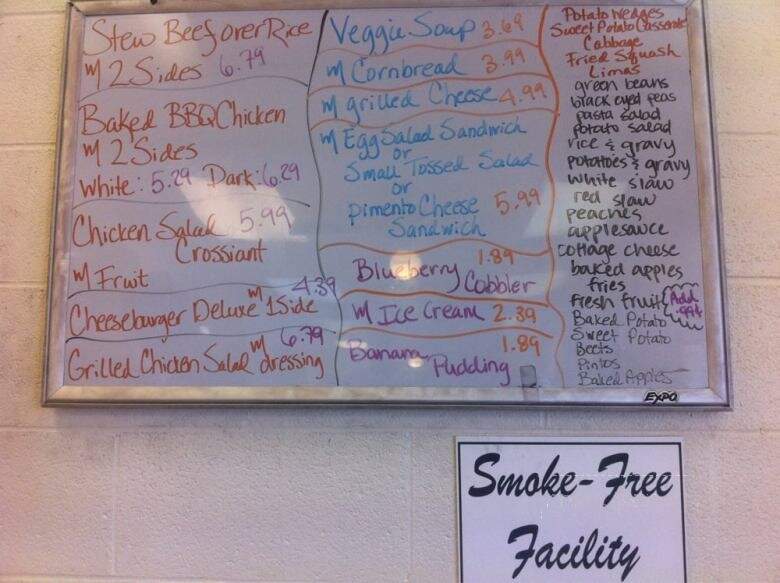 Stew Beef over Rice
w/ 2 Sides 6.79
Baked BBQ Chicken
w/ 2 Sides
White: 5.29 Dark: 6.29
Chicken Salad 5.99
Crossiant
w/ Fruit
4.39
Cheeseburger Deluxe w/ 1 Side
6.79
Grilled Chicken Salad w/ dressing
Veggie Soup 3.69
w/ Cornbread 3.99
w/ grilled Cheese 4.99
w/ Egg Salad Sandwich
or
Small Tossed Salad
or
pimento Cheese 5.99
Sandwich
1.89
Blueberry Cobbler
w/ Ice Cream 2.39
Banana 1.89
Pudding
Potato Wedges
Sweet Potato Casserole
Cabbage
Fried Squash
Limas
green beans
black eyed peas
pasta salad
potato salad
rice & gravy
potatoes & gravy
white slaw
red slaw
peaches
applesauce
cottage cheese
baked apples
fries
fresh fruit Add .99¢
Baked Potato
Sweet Potato
Beets
Pintos
Baked Apples
EXPO
Smoke-Free
Facility